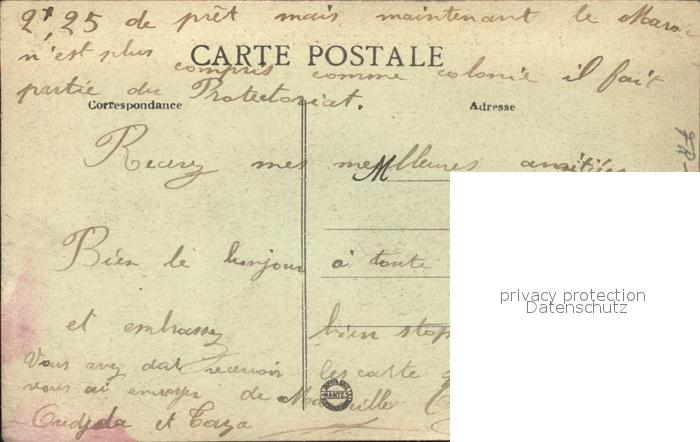 2f,25 de prêt mais maintenant le Maroc
n'est plus compris comme colonie il fait
partie du Protectoriat.
CARTE POSTALE
Correspondance
Adresse
M
Recevez mes meilleures amitiées
Bien le bonjour à toute
et embrassez bien
Vous avez dat recevoir les carte q
vous ai envoyer de Marseille
Oudjda et Taza
NANTES
privacy protection
Datenschutz